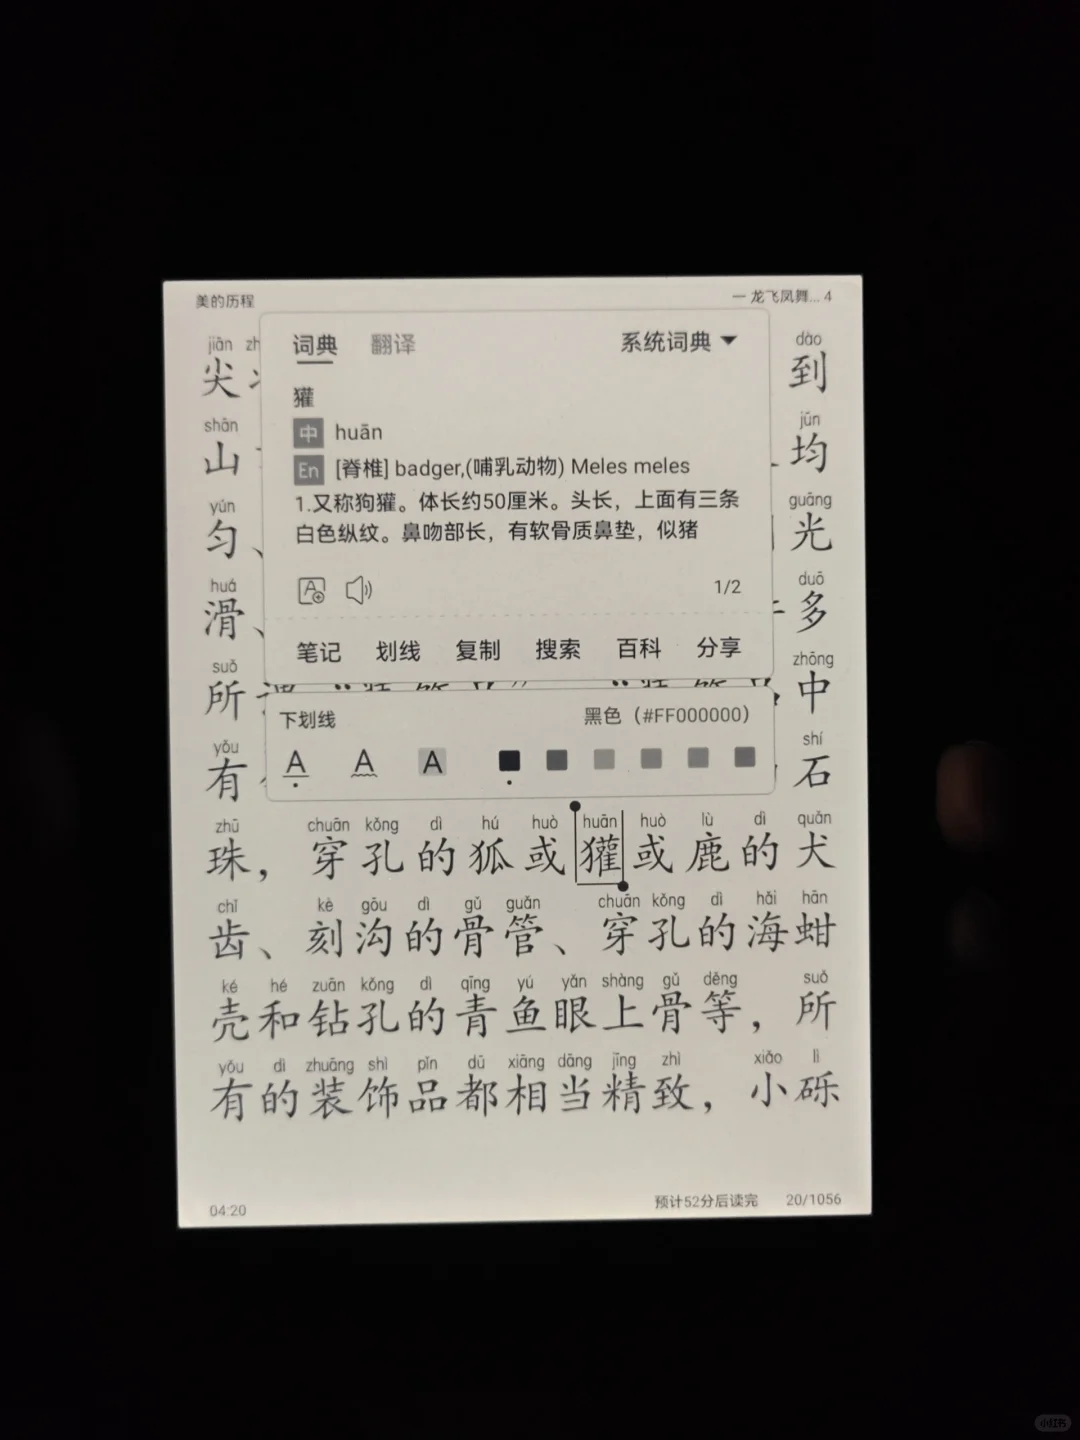 美的历程
一 龙飞凤舞... 4
词典 翻译 系统词典
獾
中 huān
En [脊椎] badger,(哺乳动物) Meles meles
1.又称狗獾。体长约50厘米。头长，上面有三条
白色纵纹。鼻吻部长，有软骨质鼻垫，似猪
1/2
笔记 划线 复制 搜索 百科 分享
下划线 黑色（#FF000000）
A A A
jiān zh dào
尖 到
shān jūn
山 均
yún guāng
匀、 光
huá duō
滑、 多
suǒ zhōng
所 中
yǒu shí
有 石
zhū chuān kǒng dì hú huò huān huò lù dì quǎn
珠，穿孔的狐或獾或鹿的犬
chǐ kè gōu dì gǔ guǎn chuān kǒng dì hǎi hān
齿、刻沟的骨管、穿孔的海蚶
ké hé zuān kǒng dì qīng yú yǎn shàng gǔ děng suǒ
壳和钻孔的青鱼眼上骨等，所
yǒu dì zhuāng shì pǐn dū xiāng dāng jīng zhì xiǎo lì
有的装饰品都相当精致，小砾
04:20 预计52分后读完 20/1056
小红书